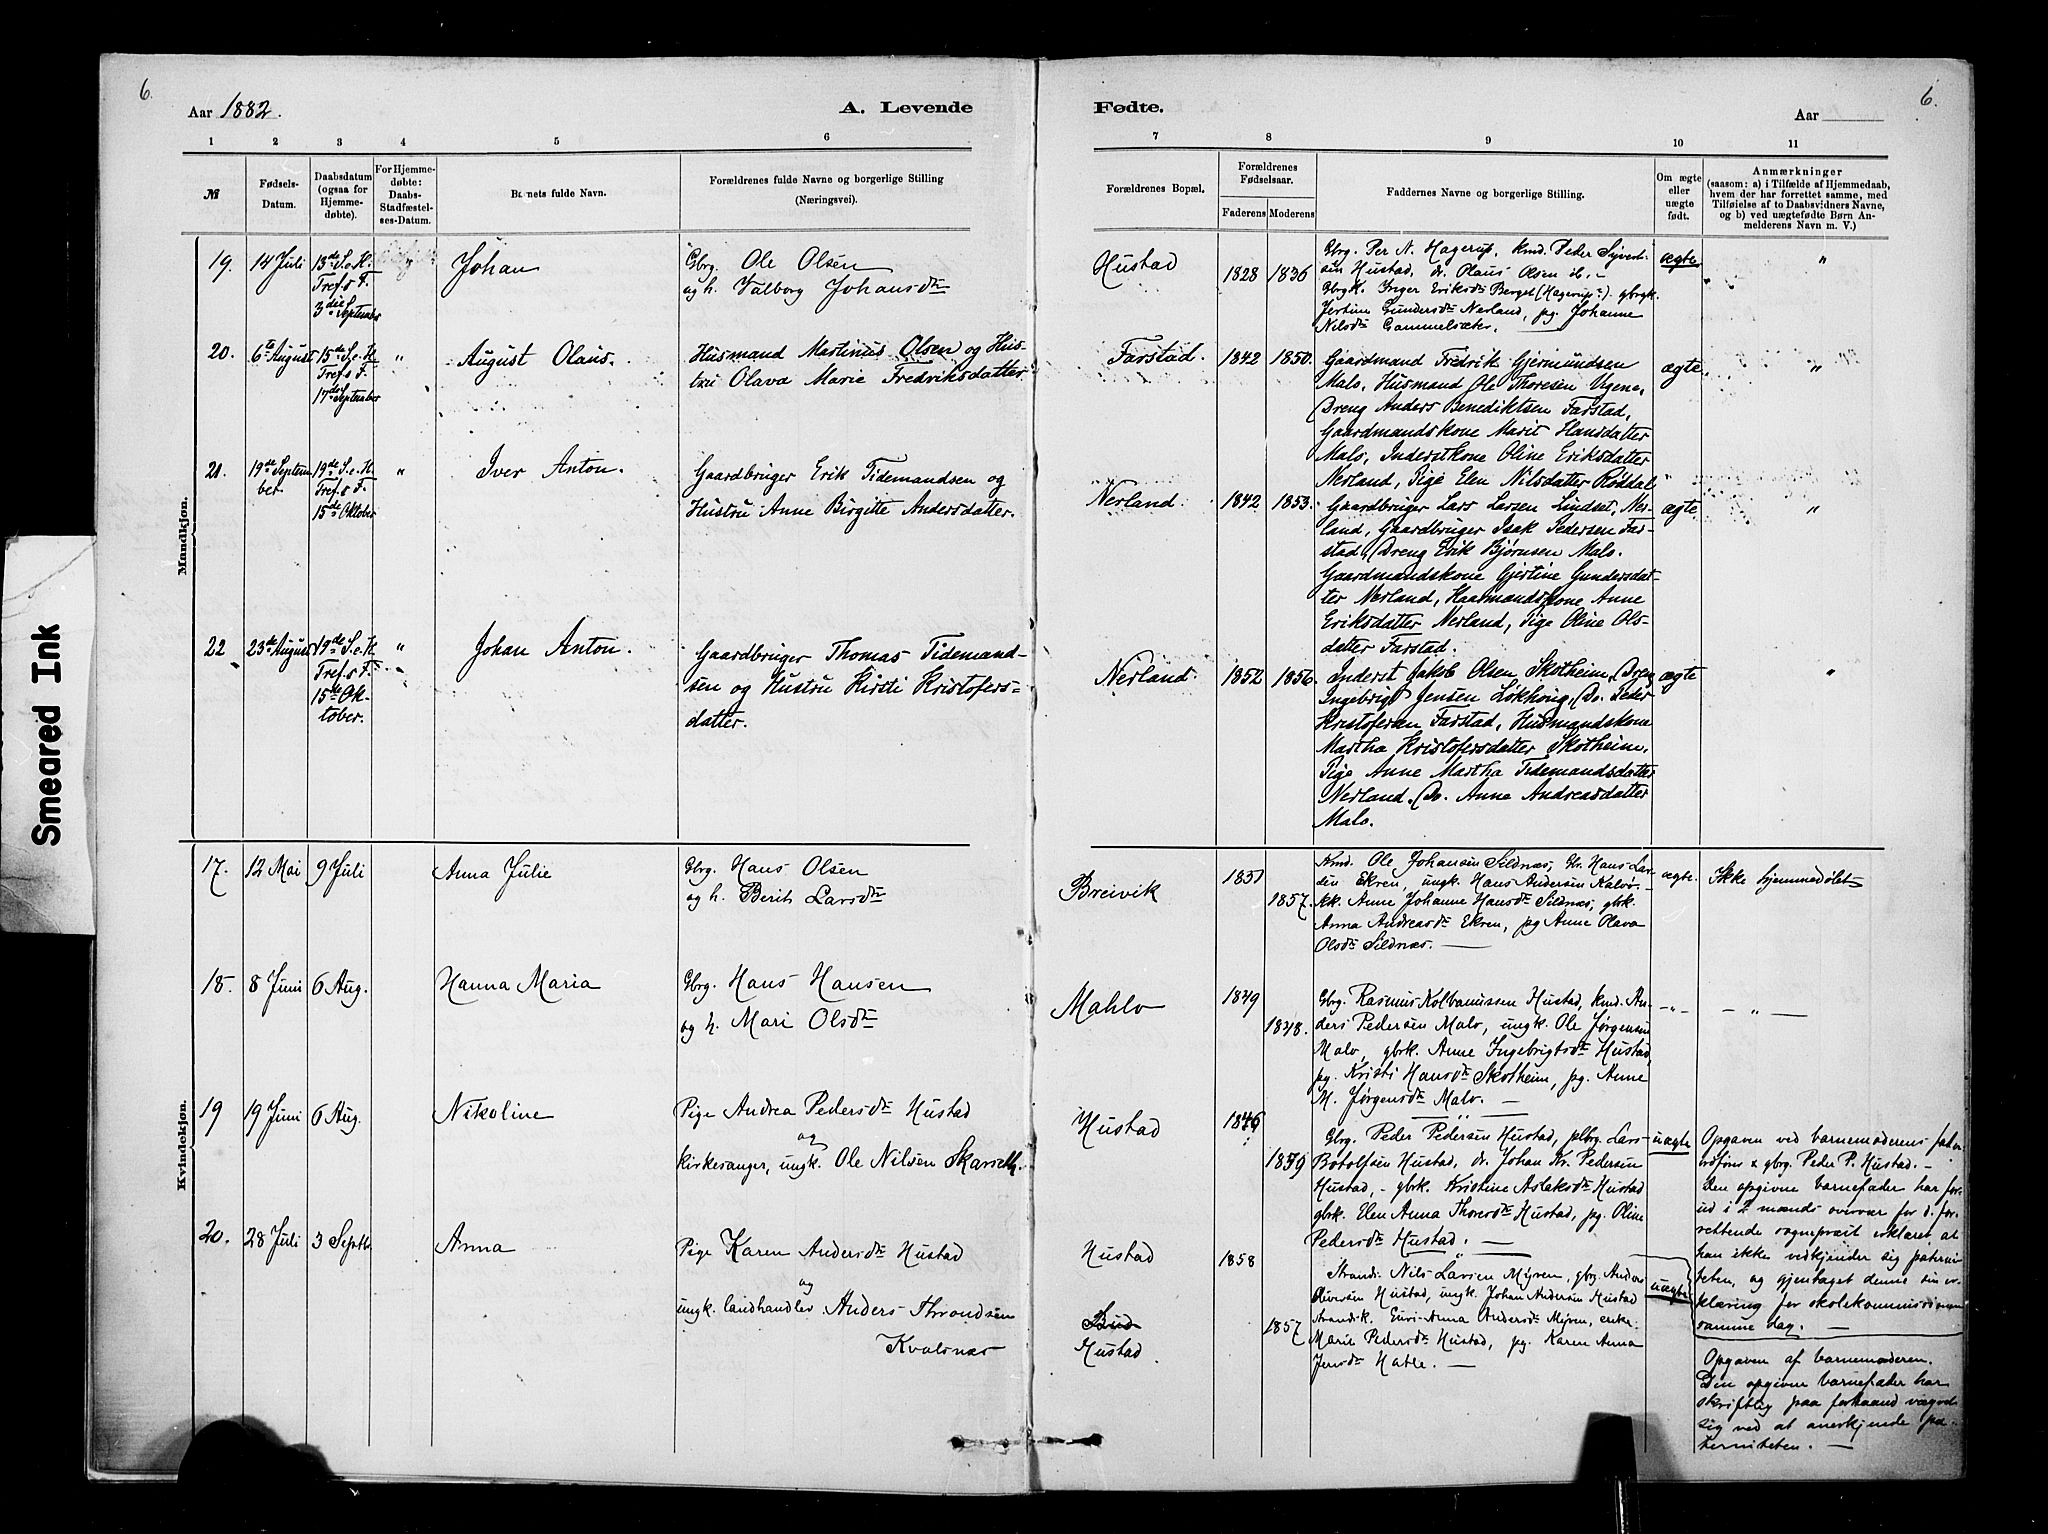 6.
Aar 1882.
A. Levende
Fødte.
Aar
6.
1 2 3 4 5 6 7 8 9 10 11
№
Fødsels-
Datum.
Daabsdatum
(ogsaa for
Hjemme-
døbte).
For Hjemme-
døbte:
Daabs-
Stadfæstel-
ses-Datum.
Barnets fulde Navn.
Forældrenes fulde Navne og borgerlige Stilling
(Næringsvei).
Forældrenes Bopæl.
Forældrenes
Fødselsaar.
Faderens Moderens
Faddernes Navne og borgerlige Stilling.
Om ægte
eller
uægte
født.
Anmærkninger
(saasom: a) i Tilfælde af Hjemmedaab,
hvem der har forrettet samme, med
Tilføielse af to Daabsvidners Navne,
og b) ved uægtefødte Børn An-
melderens Navn m. V.)
Mandkjøn.
19. 14 Juli
13de S. e. H.
Tref. s F.
3die September
Johan
Gbrg. Ole Olsen
og h. Valborg Johansdtr
Hustad
1828 1836
Gbrg. Per N. Hagerup, kmd. Peder Sivert-
sen Hustad, dr. Olaus Olsen ib. -
Gbrgk. Inger Eriksdtr Berget (Hagerup). gbrgk.
Jertine Gundersdtr Nerland, pg. Johanne
Nilsdtr Gammelsæter.
ægte
"
20. 6te August
15de S. e. H
Tref. s F.
17de September
"
August Olaus.
Husmand Martinus Olsen og Hus-
tru Olava Marie Fredriksdatter
Farstad.
1842 1850.
Gaardmand Fredrik Gjermundsen
Malo, Husmand Ole Thoresen Ugene,
Dreng Anders Benediktsen Farstad,
Gaardmandskone Marit Hansdatter
Malo, Inderstkone Oline Eriksdatter
Nerland, Pige Elen Nilsdatter Røddal
ægte.
"
21. 19de Septem
ber.
19de S. e. H.
Tref. s F.
15de Oktober
"
Iver Anton.
Gaardbruger Erik Tidemandsen og
Hustru Anne Birgitte Andersdatter.
Nerland.
1842 1853.
Gaardbruger Lars Larsen Lindset, Ner-
land, Gaardbruger Isak Pedersen Far-
stad, Dreng Erik Bjørnsen Malo.
Gaardmandskone Gjertine Gundersdat-
ter Nerland, Haarmandskone Anne
Eriksdatter Nerland, Pige Oline Ols-
datter Farstad.
ægte
"
22 23de August
19de S. e. H
Tref. s F.
15de Ok-
tober.
"
Johan Anton.
Gaardbruger Thomas Tidemand-
sen og Hustru Kirsti Kristofers-
datter.
Nerland.
1852 1856.
Inderst Jakob Olsen Skotheim, Dreng
Ingebrigt Jensen Løkhøug, Do. Peder
Kristofersen Farstad, Husmandskone
Martha Kristofersdatter Skotheim,
Pige Anne Martha Tidemandsdatter
Nerland. Do. Anne Andreasdatter
Malo.
ægte
"
Kvindekjøn.
17. 12 Mai 9 Juli
Anna Julie
Gbrg. Hans Olsen
og h. Berit Larsdtr
Breivik
1851
1857.
Kmd. Ole Johansen Sildnæs, Gbr. Hans Lar-
sen Ekren, ungk. Hans Andersen Kalvø-
kk. Anne Johanne Hansdtr Sildnæs, gbrk.
Anna Andreasdtr Ekren, pg Anne Olava
Olsdtr Sildnæs. —
ægte.
Ikke hjemmedøbt
18. 8 Juni 6 Aug.
Hanna Maria
Gbrg. Hans Hansen
og h. Mari Olsdtr
Mahlo
1849
1848.
Gbrg. Rasmus Kolbanussen Hustad, kmd. An-
ders Pedersen Malo, ungk. Ole Jørgensen
Malo, gbrk. Anne Ingebrigtsdtr Hustad,
pg. Kristi Hansdtr Skotheim, pg. Anne
M. Jørgensdtr Malo. —
- " -
- " -
19 19 Juni 6 Aug.
Nikoline
Pige Andrea Pedersdtr Hustad
og
kirkesanger, ungk. Ole Nilsen Skarseth.
Hustad
1846
1859
Gbrg. Peder Pedersen Hustad, Lars
Botolfsen Hustad, dr. Johan Kr. Pedersen
Hustad, - gbrk. Kristine Aslaksdtr Hustad
gbrk. Elen Anna Thoresdtr Hustad, pg. Oline
Pedersdtr Hustad. —
uægte
Opgaven ved barnemoderens fader
gbrg. Peder P. Hustad. -
Den opgivne barnefader har for-
ud i 2 mænds overvær for d. for-
rettende sogneprest erklæret, at
han ikke vedkjender sig paterni-
teten, og gjentaget denne sin er-
klæring for skolekommissionen
samme dag. —
20. 28 Juli 3 Septb.
Anna
Pige Karen Andersdtr Hustad
og
ungk. landhandler Anders Throndsen
Kvalsnæs
Hustad
Bud
Hustad
1858
1857
Strands. Nils Larsen Myren, gbrg. Anders
Sivertsen Hustad, ungk. Johan Andersen Hustad
Strandsk. Guri-Anna Andersdtr Myren, enke
Marit Pedersdtr Hustad, pg. Karen Anna
Jensdtr Hatle. —
uægte
Opgaven af barnemoderen.
Den opgivne barnefader har
skriftlig paa forhaand vægret
sig ved at anerkjende pa-
terniteten. —
Smeared Ink